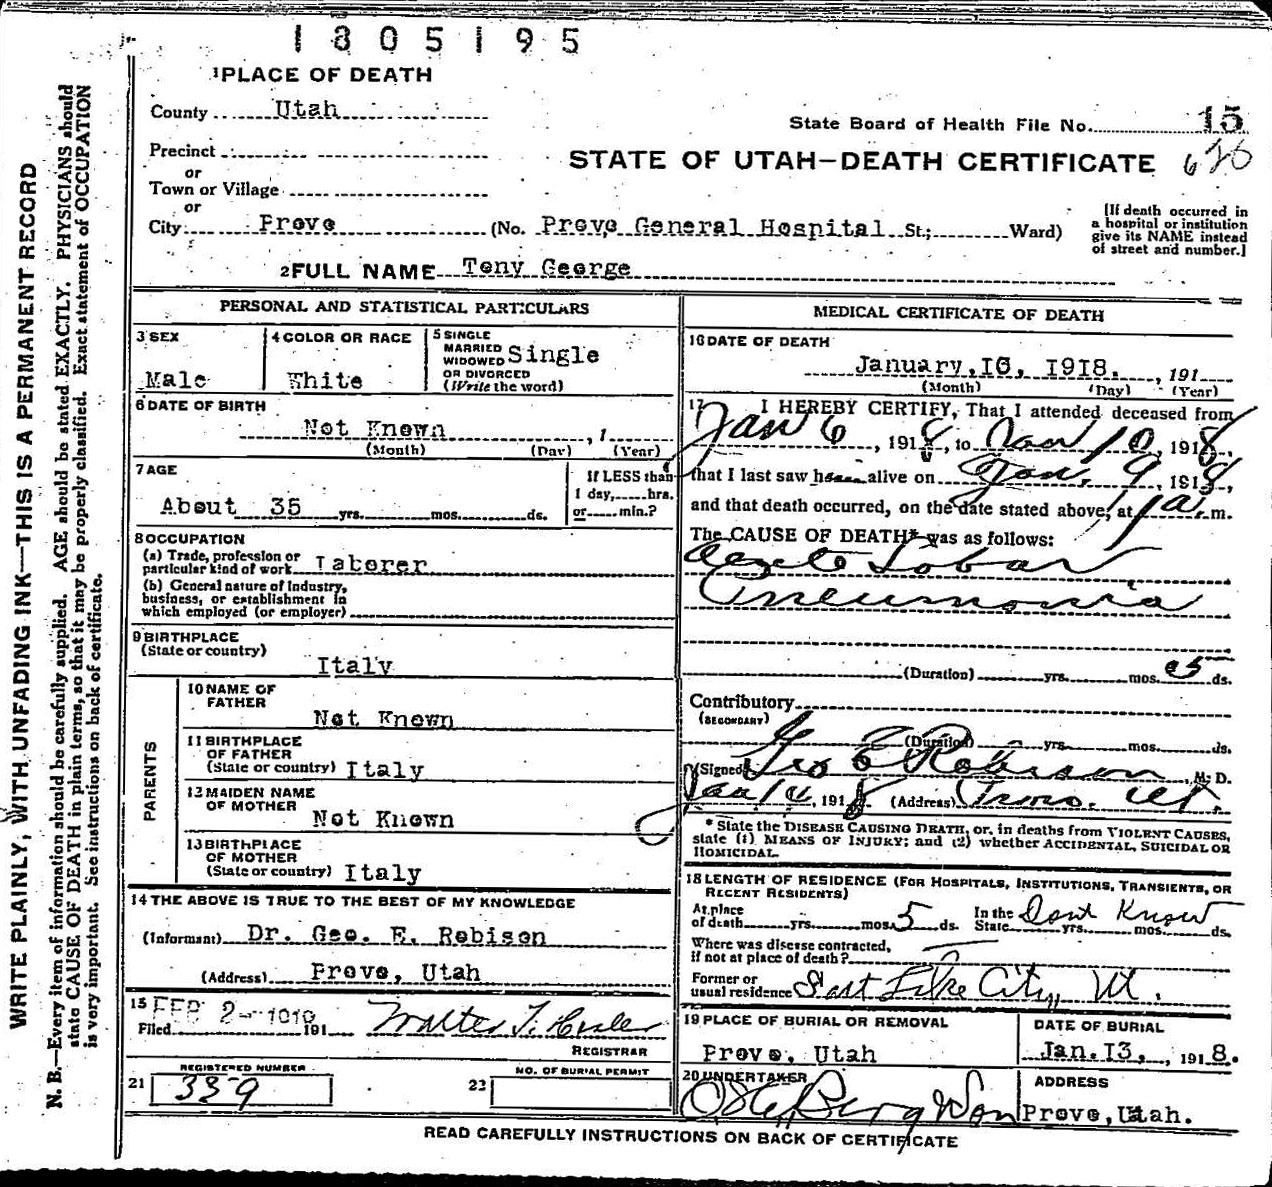 1305195
1 PLACE OF DEATH
County Utah
State Board of Health File No. 15
Precinct
or
STATE OF UTAH—DEATH CERTIFICATE
Town or Village
or
City Provo (No. Provo General Hospital St.; Ward)
[If death occurred in
a hospital or institution
give its NAME instead
of street and number.]
2 FULL NAME Tony George
PERSONAL AND STATISTICAL PARTICULARS
3 SEX
Male
4 COLOR OR RACE
White
5 SINGLE
MARRIED
WIDOWED
OR DIVORCED
(Write the word)
Single
6 DATE OF BIRTH
Not Known , 1
(Month) (Day) (Year)
7 AGE
About 35 yrs. mos. ds.
If LESS than
1 day, hrs.
or min.?
8 OCCUPATION
(a) Trade, profession or
particular kind of work Laborer
(b) General nature of Industry,
business, or establishment in
which employed (or employer)
9 BIRTHPLACE
(State or country)
Italy
PARENTS
10 NAME OF
FATHER
Not Known
11 BIRTHPLACE
OF FATHER
(State or country) Italy
12 MAIDEN NAME
OF MOTHER
Not Known
13 BIRTHPLACE
OF MOTHER
(State or country) Italy
14 THE ABOVE IS TRUE TO THE BEST OF MY KNOWLEDGE
(Informant) Dr. Geo. E. Robison
(Address) Provo, Utah
15
Filed FEB 2- 191
REGISTRAR
REGISTERED NUMBER
21 339
NO. OF BURIAL PERMIT
22
MEDICAL CERTIFICATE OF DEATH
16 DATE OF DEATH
January, 10, 1918. , 191
(Month) (Day) (Year)
17 I HEREBY CERTIFY, That I attended deceased from
Jan 6, 1918, to Jan 10, 1918,
that I last saw h alive on Jan. 9, 1918,
and that death occurred, on the date stated above, at 1 a. m.
The CAUSE OF DEATH* was as follows:
Acute Lobar
Pneumonia
(Duration) yrs. mos. 5 ds.
Contributory
(SECONDARY)
(Duration) yrs. mos. ds.
(Signed) Geo E Robison, M. D.
Jan , 1918. (Address) Provo. Ut.
* State the DISEASE CAUSING DEATH, or, in deaths from VIOLENT CAUSES,
state (1) MEANS OF INJURY; and (2) whether ACCIDENTAL, SUICIDAL OR
HOMICIDAL.
18 LENGTH OF RESIDENCE (FOR HOSPITALS, INSTITUTIONS, TRANSIENTS, OR
RECENT RESIDENTS)
At place
of death yrs. mos. 5 ds.
In the
State Dont Know yrs. mos. ds.
Where was disease contracted,
if not at place of death?
Former or
usual residence Salt Lake City, Ut.
19 PLACE OF BURIAL OR REMOVAL
Provo, Utah
DATE OF BURIAL
Jan. 13, , 1918.
20 UNDERTAKER
Berg & Son
ADDRESS
Provo, Utah.
READ CAREFULLY INSTRUCTIONS ON BACK OF CERTIFICATE
WRITE PLAINLY, WITH UNFADING INK—THIS IS A PERMANENT RECORD
N. B.—Every item of information should be carefully supplied. AGE should be stated EXACTLY. PHYSICIANS should
state CAUSE OF DEATH in plain terms, so that it may be properly classified. Exact statement of OCCUPATION
is very important. See instructions on back of certificate.